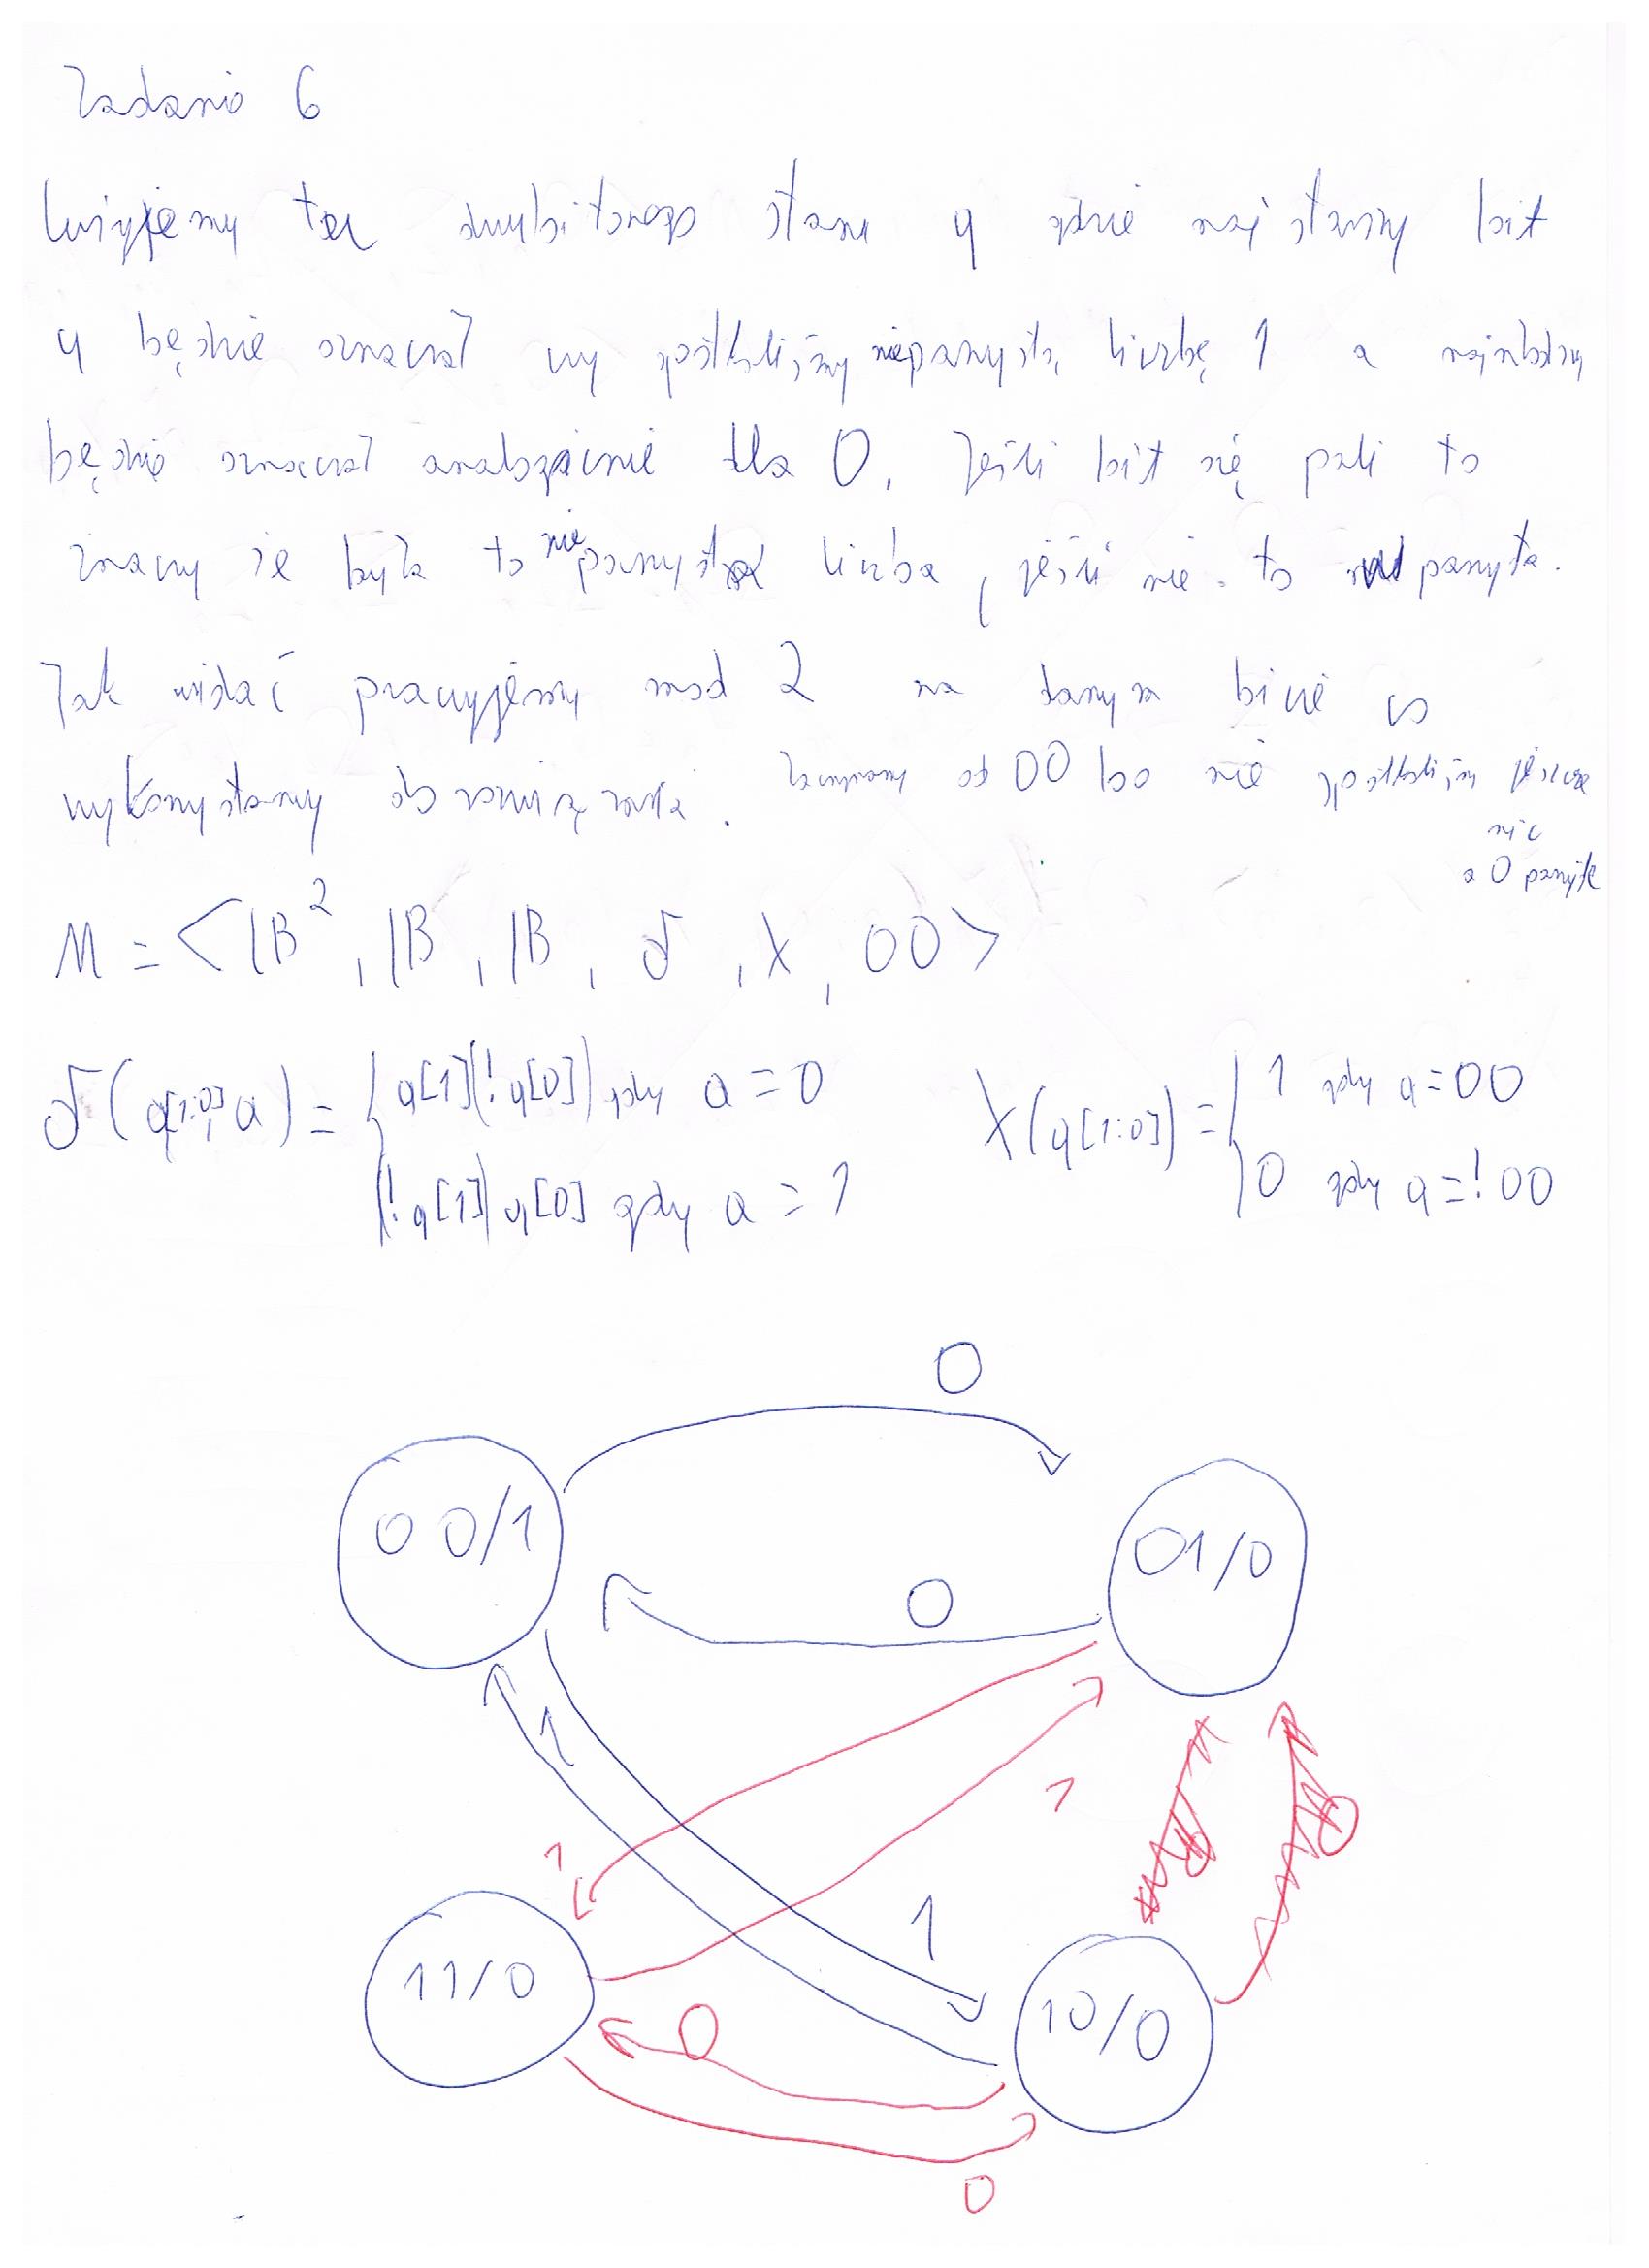 Zadanie 6
Użyjemy tu dwubitowego stanu q gdzie najstarszy bit
q będzie oznaczał czy spotkaliśmy nieparzystą liczbę 1 a najmłodszy
będzie oznaczał analogicznie dla 0. Jeśli bit się pali to
znaczy że była to nieparzysta liczba, jeśli nie to parzysta.
Jak widać pracujemy mod 2 na danym bicie co
wykorzystamy do rozwiązania. Zaczynamy od 00 bo nie spotkaliśmy jeszcze
nic
a 0 parzyste
M = <|B², |B, |B, δ, λ, 00>
δ(q[1:0], a) = { q[1](!q[0]) gdy a = 0
(!q[1])q[0] gdy a = 1
λ(q[1:0]) = { 1 gdy q = 00
0 gdy q =! 00
0
00/1
01/0
0
1
1
1
1
11/0
10/0
0
0